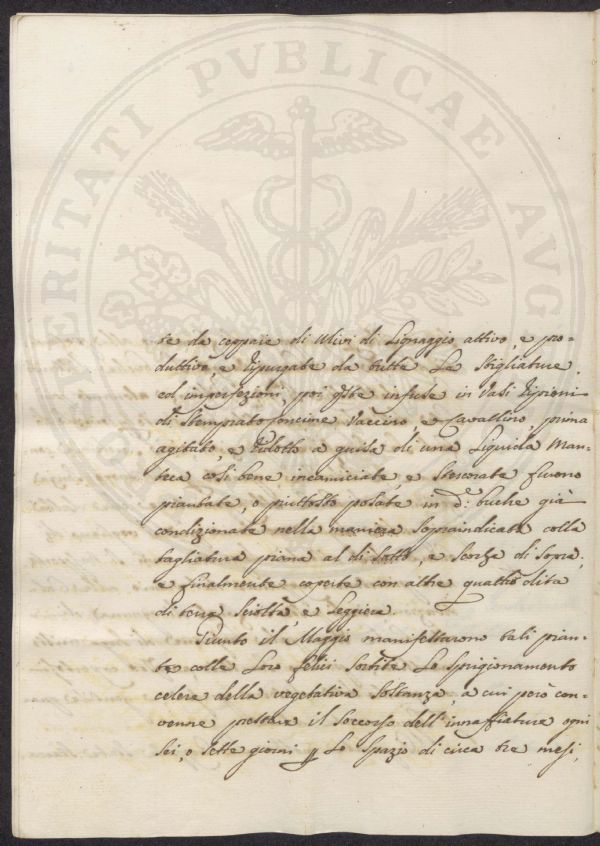 PROSPERITATI PVBLICAE AVG
te da ceppaie di Ulivi di Lignaggio attivo, e pro-
duttivo, e ripurgate da tutte le stigliature,
ed imperfezioni, poi q.ste infuse in Vasi ripieni
di stemprato concime Vaccino, e Cavallino, prima
agitato, e ridotto a guisa di una Liquida Man-
teca così bene incamiciate, e stercorate furono
piantate, o piuttosto posate in d.e buche già
condizionate nella maniera sopraindicata colla
tagliatura piana al di sotto, e scorza di sopra,
e finalmente coperte con altre quattro dita
di terra sciolta, e Leggiera.
Giunto il Maggio manifestarono tali pian-
te colle Loro felici sortite Lo sprigionamento
celere della vegetativa sostanza, a cui però con-
venne prestare il soccorso dell'innaffiature ogni
sei, o sette giorni p Lo spazio di circa tre mesi,